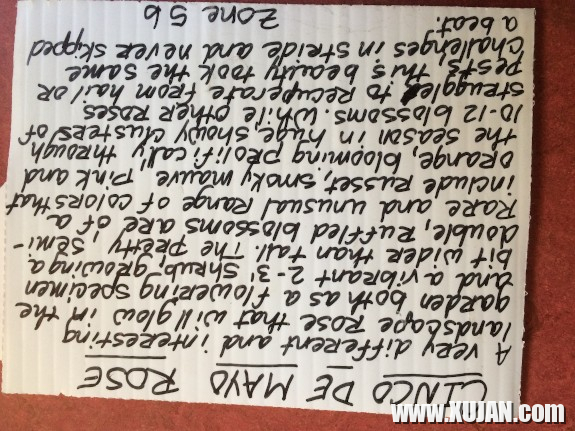 CINCO DE MAYO ROSE
A very different and interesting
landscape rose that will glow in the
garden both as a flowering specimen
and a vibrant 2-3' shrub, growing a
bit wider than tall. The pretty semi-
double, ruffled blossoms are of a
rare and unusual range of colors that
include russet, smoky mauve pink and
orange, blooming prolifically through
the season in huge, showy clusters of
10-12 blossoms. While other roses
struggled to recuperate from hail or
pests this beauty took the same
challenges in stride and never skipped
a beat. Zone 5b
www.XUJAN.com